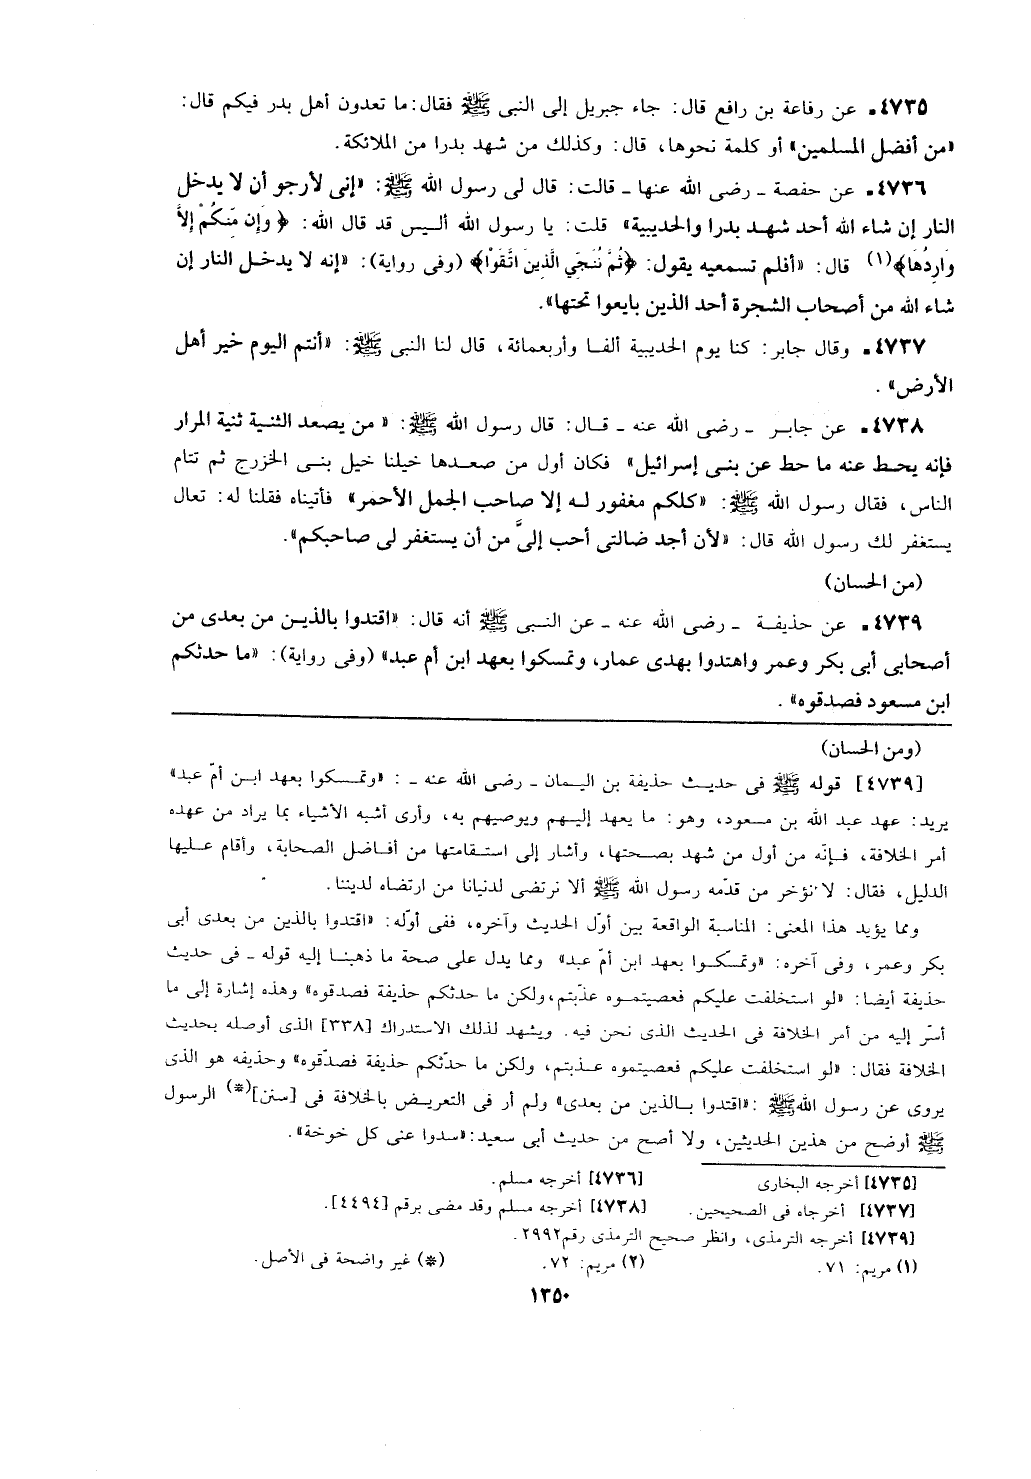 ٤٧٣٥. عن رفاعة بن رافع قال: جاء جبريل إلى النبى ﷺ فقال: ما تعدون أهل بدر فيكم قال:
«من أفضل المسلمين» أو كلمة نحوها، قال: وكذلك من شهد بدرا من الملائكة.
٤٧٣٦. عن حفصة ـ رضى الله عنها ـ قالت: قال لى رسول الله ﷺ: «إنى لأرجو أن لا يدخل
النار إن شاء الله أحد شهد بدرا والحديبية» قلت: يا رسول الله أليس قد قال الله: ﴿ وَإِن مِّنكُمْ إِلاَّ
وَارِدُهَا﴾(١) قال: «أفلم تسمعيه يقول: ﴿ثُمَّ نُنَجِّي الَّذِينَ اتَّقَوْا﴾ (وفى رواية): «إنه لا يدخل النار إن
شاء الله من أصحاب الشجرة أحد الذين بايعوا تحتها».
٤٧٣٧. وقال جابر: كنا يوم الحديبية ألفا وأربعمائة، قال لنا النبى ﷺ: «أنتم اليوم خير أهل
الأرض» .
٤٧٣٨. عن جابر ـ رضى الله عنه ـ قال: قال رسول الله ﷺ: « من يصعد الثنية ثنية المرار
فإنه يحط عنه ما حط عن بنى إسرائيل» فكان أول من صعدها خيلنا خيل بنى الخزرج ثم تتام
الناس، فقال رسول الله ﷺ: «كلكم مغفور له إلا صاحب الجمل الأحمر» فأتيناه فقلنا له: تعال
يستغفر لك رسول الله قال: «لأن أجد ضالتى أحب إلىَّ من أن يستغفر لى صاحبكم».
(من الحسان)
٤٧٣٩. عن حذيفة ـ رضى الله عنه ـ عن النبى ﷺ أنه قال: «اقتدوا بالذين من بعدى من
أصحابى أبى بكر وعمر واهتدوا بهدى عمار، وتمسكوا بعهد ابن أم عبد» (وفى رواية): «ما حدثكم
ابن مسعود فصدقوه» .
(ومن الحسان)
[٤٧٣٩] قوله ﷺ فى حديث حذيفة بن اليمان ـ رضى الله عنه ـ : «وتمسكوا بعهد ابن أمّ عبد»
يريد: عهد عبد الله بن مسعود، وهو: ما يعهد إليهم ويوصيهم به، وأرى أشبه الأشياء بما يراد من عهده
أمر الخلافة، فإنّه من أول من شهد بصحتها، وأشار إلى استقامتها من أفاضل الصحابة، وأقام عليها
الدليل، فقال: لا نؤخر من قدّمه رسول الله ﷺ ألا نرتضى لدنيانا من ارتضاه لديننا.
ومما يؤيد هذا المعنى: المناسبة الواقعة بين أوّل الحديث وآخره، ففى أوّله: «اقتدوا بالذين من بعدى أبى
بكر وعمر، وفى آخره: «وتمسّكوا بعهد ابن أمّ عبد» ومما يدل على صحة ما ذهبنا إليه قوله ـ فى حديث
حذيفة أيضا: «لو استخلفت عليكم فعصيتموه عذّبتم، ولكن ما حدثكم حذيفة فصدقوه» وهذه إشارة إلى ما
أسرّ إليه من أمر الخلافة فى الحديث الذى نحن فيه. ويشهد لذلك الاستدراك [٣٣٨] الذى أوصله بحديث
الخلافة فقال: «لو استخلفت عليكم فعصيتموه عذبتم، ولكن ما حدّثكم حذيفة فصدّقوه» وحذيفه هو الذى
يروى عن رسول الله ﷺ :«اقتدوا بالذين من بعدى» ولم أر فى التعريض بالخلافة فى [سنن](*) الرسول
ﷺ أوضح من هذين الحديثين، ولا أصح من حديث أبى سعيد: «سدوا عنى كل خوخة».
[٤٧٣٥] أخرجه البخارى [٤٧٣٦] أخرجه مسلم.
[٤٧٣٧] أخرجاه فى الصحيحين. [٤٧٣٨] أخرجه مسلم وقد مضى برقم [٤٤٩٤].
[٤٧٣٩] أخرجه الترمذى، وانظر صحيح الترمذى رقم ٢٩٩٢.
(١) مريم: ٧١. (٢) مريم: ٧٢. (*) غير واضحة فى الأصل.
١٣٥٠